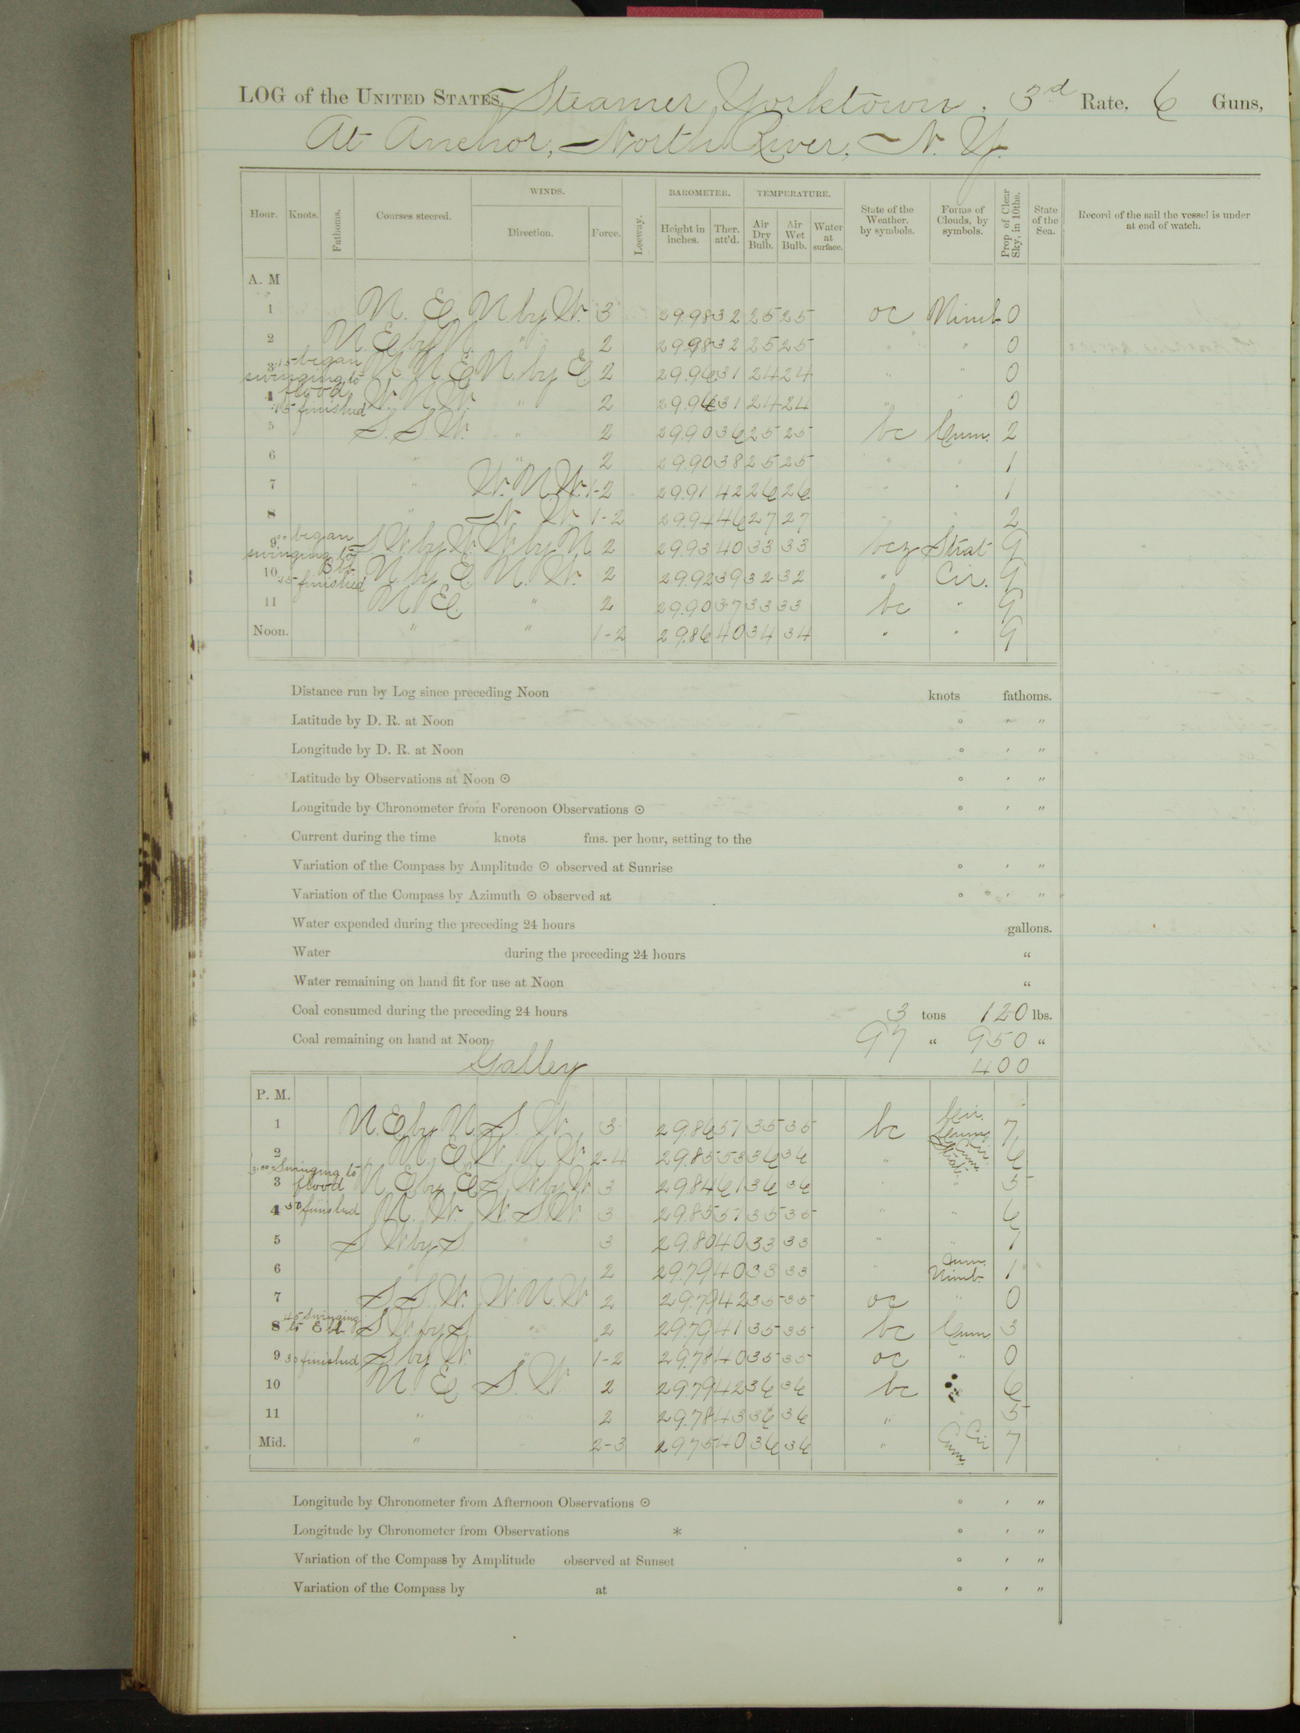 LOG of the UNITED STATES Steamer Yorktown, 3rd Rate, 6 Guns,
At Anchor, North River, N. Y.
Hour. Knots. Fathoms. Courses steered. WINDS. Direction. Force. Leeway. BAROMETER. Height in inches. Ther. att'd. TEMPERATURE. Air Dry Bulb. Air Wet Bulb. Water at surface. State of the Weather, by symbols. Forms of Clouds, by symbols. Prop of Clear Sky, in 10ths. State of the Sea. Record of the sail the vessel is under at end of watch.
A. M
1 N. E. N by W. 3 29.98 32 25 25 oc Nimb 0
2 N E by N " 2 29.98 32 25 25 " " 0
3 15 began swinging to flood N N E N. by E 2 29.96 31 24 24 " " 0
4 15 finished W. N. W. " 2 29.96 31 24 24 " " 0
5 S. S. W. " 2 29.90 36 25 25 bc Cum. 2
6 " " 2 29.90 38 25 25 " " 1
7 " W. N. W. 1-2 29.91 42 26 26 " " 1
8 " N. W. 1-2 29.94 46 27 27 " " 2
9 began swinging to Ebb S W by W W by N 2 29.93 40 33 33 bcz Strat 9
10 45 finished N by E N. W. 2 29.92 39 32 32 " Cir. 9
11 N E " 2 29.90 37 33 33 bc " 9
Noon. " " 1-2 29.86 40 34 34 " " 9
Distance run by Log since preceding Noon knots fathoms.
Latitude by D. R. at Noon ° ' "
Longitude by D. R. at Noon ° ' "
Latitude by Observations at Noon ⊙ ° ' "
Longitude by Chronometer from Forenoon Observations ⊙ ° ' "
Current during the time knots fms. per hour, setting to the
Variation of the Compass by Amplitude ⊙ observed at Sunrise ° ' "
Variation of the Compass by Azimuth ⊙ observed at ° ' "
Water expended during the preceding 24 hours gallons.
Water during the preceding 24 hours "
Water remaining on hand fit for use at Noon "
Coal consumed during the preceding 24 hours 3 tons 120 lbs.
Coal remaining on hand at Noon 97 " 950 "
Galley 400
P. M.
1 N. E by N. S. W. 3 29.86 57 35 35 bc Cir. Cum 7
2 N. E W. N. W. 2-4 29.85 53 36 36 " Cir. Cum Strat 6
3 3.00 Swinging to flood N E by E S. W by W 3 29.84 61 36 36 " " 5
4 30 finished N. W. W. S. W. 3 29.85 57 35 35 " " 6
5 S W by S. " 3 29.80 40 33 33 " " 1
6 " 2 29.79 40 33 33 " Cum. Nimb 1
7 S. S. W. W. N. W 2 29.79 42 35 35 oc " 0
8 45 Swinging to Ebb S W by S " 2 29.79 41 35 35 bc Cum 3
9 30 finished S by W. " 1-2 29.78 40 35 35 oc " 0
10 N E S. W. 2 29.79 42 36 36 bc " 6
11 " 2 29.78 43 36 36 " " 5
Mid. " 2-3 29.75 40 36 36 " Cir Cum. 7
Longitude by Chronometer from Afternoon Observations ⊙ ° ' "
Longitude by Chronometer from Observations * ° ' "
Variation of the Compass by Amplitude observed at Sunset ° ' "
Variation of the Compass by at ° ' "